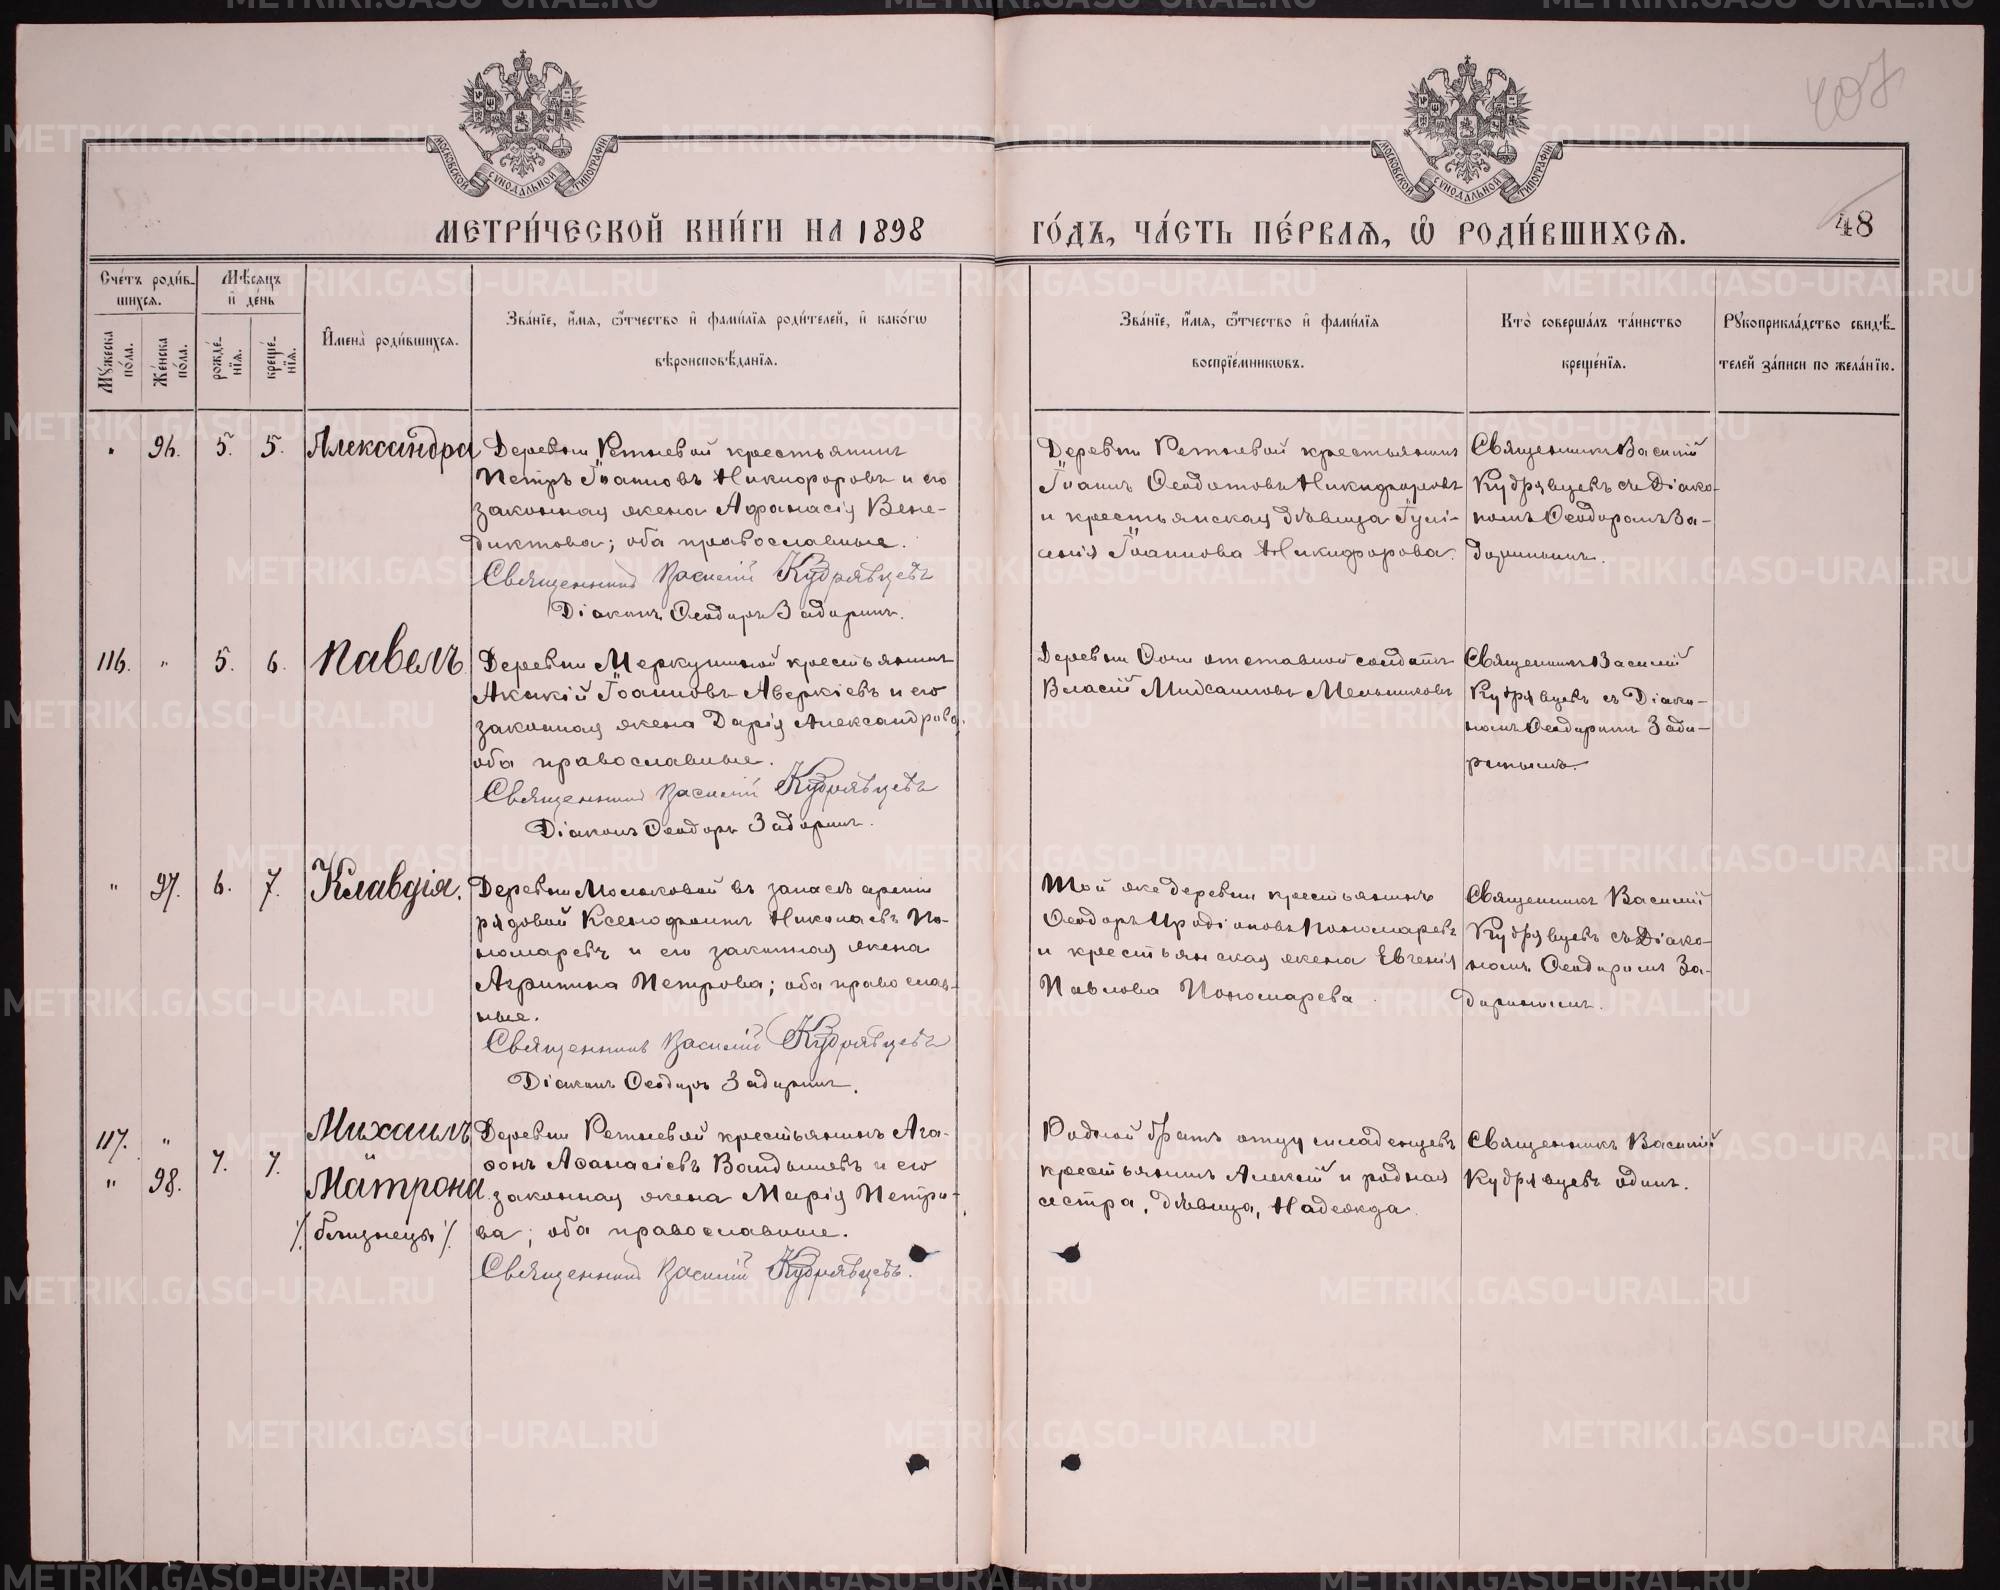 407
МОСКОВСКОЙ СѴНОДАЛЬНОЙ ТИПОГРАФІИ
МОСКОВСКОЙ СѴНОДАЛЬНОЙ ТИПОГРАФІИ
МЕТРИ́ЧЕСКОЙ КНИ́ГИ НА 1898
ГО́ДЪ, ЧА́СТЬ ПЕ́РВАѦ, Ѡ҆ РОДИ́ВШИХСѦ.
48
Сче́тъ роди́в-
шихсѧ.
Мѣ́сѧцъ
и҆ де́нь
Мꙋ́жеска
по́ла.
Же́нска
по́ла.
рожде́-
нїѧ.
креще́-
нїѧ.
И҆мена̀ роди́вшихсѧ.
Зва́нїе, и҆́мѧ, ѻ҆́тчество и҆ фами́лїѧ роди́телей, и҆ како́гѡ
вѣроисповѣ́данїѧ.
Зва́нїе, и҆́мѧ, ѻ҆́тчество и҆ фами́лїѧ
воспрїе́мникѡвъ.
Кто̀ соверша́лъ та́инство
креще́нїѧ.
Рꙋкоприкла́дство свидѣ́-
телей за́писи по жела́нїю.
96. 5. 5. Александра
Деревни Ретневой крестьянинъ
Петръ Іоанновъ Никифоровъ и его
законная жена Афанасія Вене-
диктова; оба православные.
Священникъ Василій Кудрявцевъ
Діаконъ Ѳеодоръ Задоринъ.
Деревни Ретневой крестьянинъ
Іоаннъ Ѳеодотовъ Никифоровъ
и крестьянская дѣвица Іулі-
анія Іоаннова Никифорова.
Священникъ Василій
Кудрявцевъ съ Діако-
номъ Ѳеодоромъ За-
доринымъ.
116. " 5. 6. Павелъ
Деревни Меркушиной крестьянинъ
Акакій Іоанновъ Аверкіевъ и его
законная жена Дарія Александрова,
оба православные.
Священникъ Василій Кудрявцевъ
Діаконъ Ѳеодоръ Задоринъ.
Деревни отставной солдатъ
Власій Мельниковъ
Священникъ Василій
Кудрявцевъ съ Діако-
номъ Ѳеодоромъ Задо-
ринымъ.
" 97. 6. 7. Клавдія.
Деревни Молоковой въ запасѣ арміи
рядовой Ксенофонтъ Николаевъ По-
номаревъ и его законная жена
Агрипина Петрова; оба православ-
ные.
Священникъ Василій Кудрявцевъ
Діаконъ Ѳеодоръ Задоринъ.
Той же деревни крестьянинъ
Ѳеодоръ Иродіоновъ Пономаревъ
и крестьянская жена Евгенія
Павлова Пономарева.
Священникъ Василій
Кудрявцевъ съ Діако-
номъ Ѳеодоромъ За-
доринымъ.
117. " Михаилъ
" 98. 7. 7. Матрона
/близнецы/.
Деревни Ретневой крестьянинъ Ага-
фонъ Аѳанасіевъ Вандышевъ и его
законная жена Марія Петро-
ва; оба православные.
Священникъ Василій Кудрявцевъ.
Родной братъ отцу младенцевъ
крестьянинъ Алексій и родная
сестра, дѣвица, Надежда.
Священникъ Василій
Кудрявцевъ одинъ.
METRIKI.GASO-URAL.RU